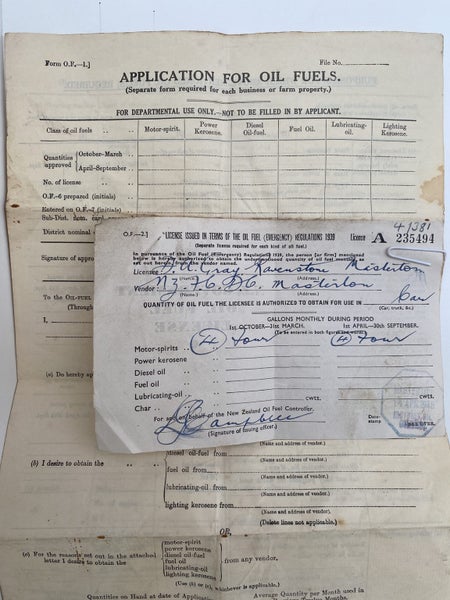 Form O.F.—1.]
File No.
APPLICATION FOR OIL FUELS.
(Separate form required for each business or farm property.)
FOR DEPARTMENTAL USE ONLY.—NOT TO BE FILLED IN BY APPLICANT.
Class of oil fuels Motor-spirit. Power Kerosene. Diesel Oil-fuel. Fuel Oil. Lubricating-oil. Lighting Kerosene.
Quantities approved { October–March
April–September
No. of licence
O.F.—6 prepared (initials)
Entered on O.F.—7 (initials)
Sub-Dist. nom. card
District nominal
Signature of
To the OIL-FUEL
(Through
I,
(a) Do hereby
O.F.—2.]
"LICENSE ISSUED IN TERMS OF THE OIL FUEL (EMERGENCY) REGULATIONS 1939
License A 235494
(Separate licenses required for each kind of oil fuel.)
In pursuance of the Oil Fuel (Emergency) Regulations 1939, the person [or firm] mentioned
below is hereby authorized to obtain the undermentioned quantity of oil fuel
Licensee J. A. Gray Ravenston Masterton
(Name.) (Address.)
Vendor N.Z.F.C.A.C. Masterton
(Name.) (Address.)
QUANTITY OF OIL FUEL THE LICENSEE IS AUTHORIZED TO OBTAIN FOR USE IN Car
(Car, truck, &c.)
GALLONS MONTHLY DURING PERIOD
1st OCTOBER–31st MARCH. 1st APRIL–30th SEPTEMBER.
(To be entered in both figures and words.)
Motor-spirits 4 four 4 four
Power kerosene
Diesel oil
Fuel oil
Lubricating-oil
Char cwts.
For and on behalf of the New Zealand Oil Fuel Controller.
Campbell
(Signature of issuing officer.)
Date-stamp
OVER.
diesel oil-fuel from
(Name and address of vendor.)
(b) I desire to obtain the
fuel oil from
(Name and address of vendor.)
lubricating-oil from
(Name and address of vendor.)
lighting kerosene from
(Name and address of vendor.)
(Delete lines not applicable.)
OR
(c) For the reasons set out in the attached
letter I desire to obtain the
motor-spirit
power kerosene
diesel oil-fuel
fuel oil
lubricating-oil
lighting kerosene
from any vendor.
(Use (b) or (c), whichever is applicable.)
Quantities on Hand at date of Application.
Average Quantity per Month used in